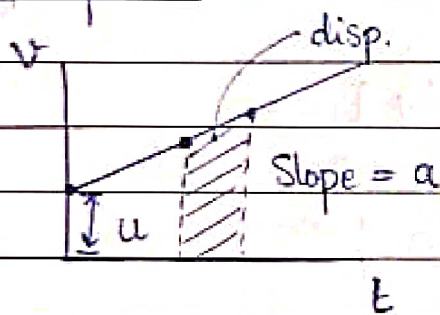 disp.
v
Slope = a
u
t